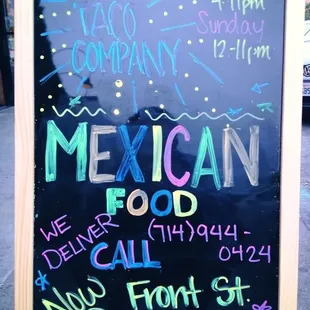 TACO
COMPANY
4-11pm
Sunday
12-11pm
MEXICAN
FOOD
WE
DELIVER
CALL
(714)944-
0424
NOW
Front St.